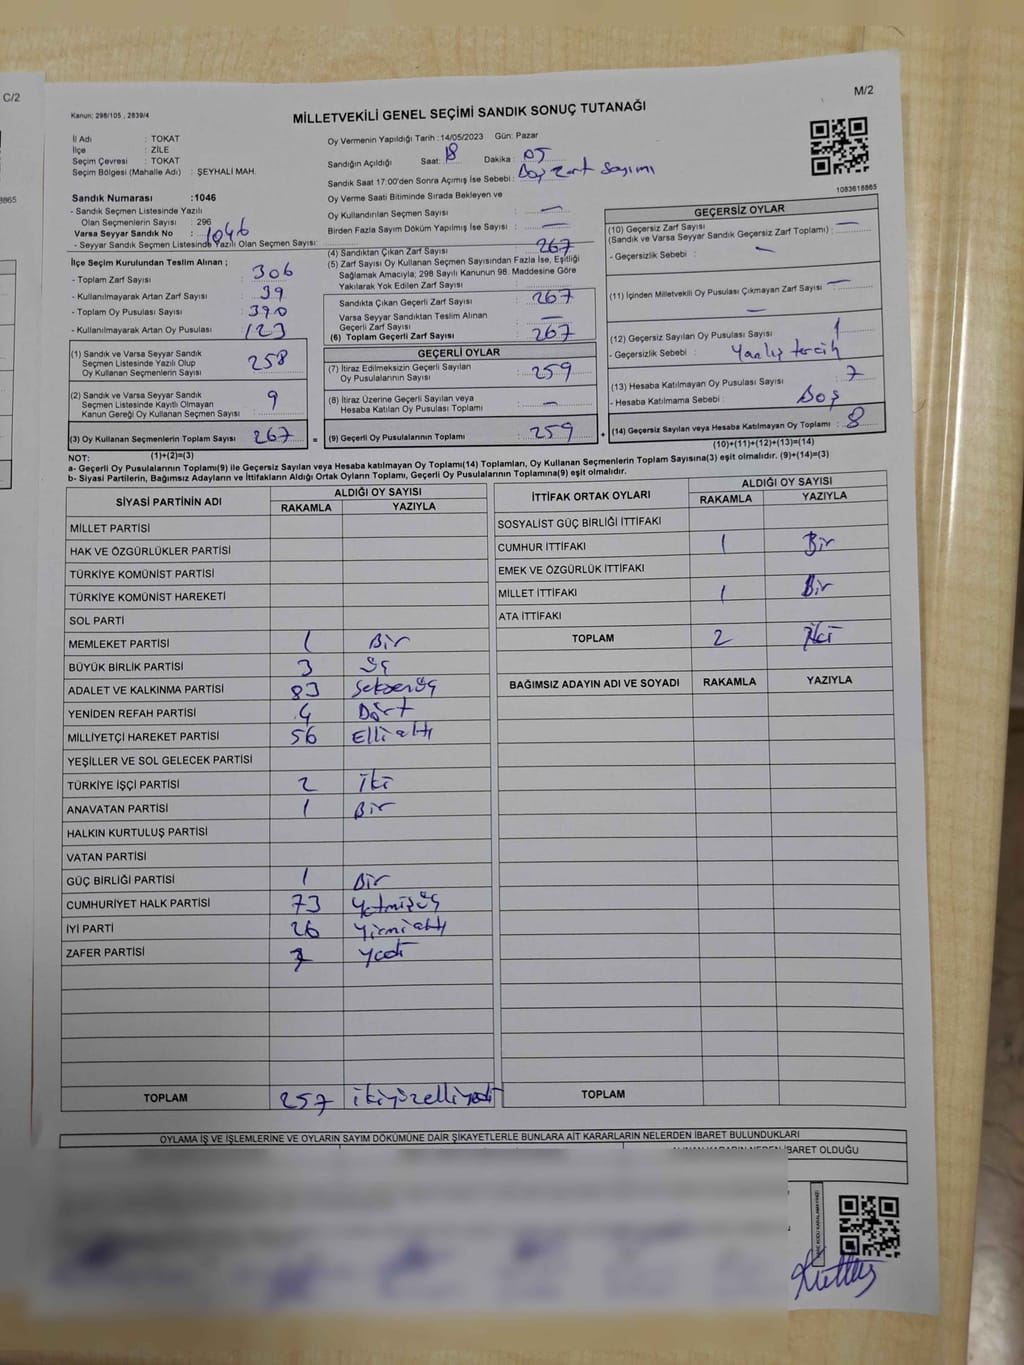 C/2
M/2
Kanun: 298/105 , 2839/4
MİLLETVEKİLİ GENEL SEÇİMİ SANDIK SONUÇ TUTANAĞI
İl Adı : TOKAT
İlçe : ZİLE
Seçim Çevresi : TOKAT
Seçim Bölgesi (Mahalle Adı) : ŞEYHALİ MAH.
Sandık Numarası :1046
- Sandık Seçmen Listesinde Yazılı
Olan Seçmenlerin Sayısı : 296
Varsa Seyyar Sandık No : 1046
- Seyyar Sandık Seçmen Listesinde Yazılı Olan Seçmen Sayısı:
Oy Vermenin Yapıldığı Tarih : 14/05/2023 Gün: Pazar
Sandığın Açıldığı Saat: 18 Dakika : 05
Sandık Saat 17:00'den Sonra Açımış İse Sebebi : Boş zarf sayımı
Oy Verme Saati Bitiminde Sırada Bekleyen ve
Oy Kullandırılan Seçmen Sayısı : —
Birden Fazla Sayım Döküm Yapılmış İse Sayısı : —
1083618865
8865
İlçe Seçim Kurulundan Teslim Alınan ;
- Toplam Zarf Sayısı : 306
- Kullanılmayarak Artan Zarf Sayısı : 39
- Toplam Oy Pusulası Sayısı : 390
- Kullanılmayarak Artan Oy Pusulası : 123
(1) Sandık ve Varsa Seyyar Sandık
Seçmen Listesinde Yazılı Olup
Oy Kullanan Seçmenlerin Sayısı : 258
(2) Sandık ve Varsa Seyyar Sandık
Seçmen Listesinde Kayıtlı Olmayan
Kanun Gereği Oy Kullanan Seçmen Sayısı : 9
(3) Oy Kullanan Seçmenlerin Toplam Sayısı : 267
(1)+(2)=(3)
(4) Sandıktan Çıkan Zarf Sayısı : 267
(5) Zarf Sayısı Oy Kullanan Seçmen Sayısından Fazla İse, Eşitliği
Sağlamak Amacıyla; 298 Sayılı Kanunun 98. Maddesine Göre
Yakılarak Yok Edilen Zarf Sayısı :
Sandıkta Çıkan Geçerli Zarf Sayısı : 267
Varsa Seyyar Sandıktan Teslim Alınan
Geçerli Zarf Sayısı : —
(6) Toplam Geçerli Zarf Sayısı : 267
GEÇERLİ OYLAR
(7) İtiraz Edilmeksizin Geçerli Sayılan
Oy Pusulalarının Sayısı : 259
(8) İtiraz Üzerine Geçerli Sayılan veya
Hesaba Katılan Oy Pusulası Toplamı : —
= (9) Geçerli Oy Pusulalarının Toplamı : 259 +
GEÇERSİZ OYLAR
(10) Geçersiz Zarf Sayısı
(Sandık ve Varsa Seyyar Sandık Geçersiz Zarf Toplamı) : —
- Geçersizlik Sebebi : —
(11) İçinden Milletvekili Oy Pusulası Çıkmayan Zarf Sayısı : —
—
(12) Geçersiz Sayılan Oy Pusulası Sayısı : 1
- Geçersizlik Sebebi : Yanlış tercih
(13) Hesaba Katılmayan Oy Pusulası Sayısı : 7
- Hesaba Katılmama Sebebi : Boş
(14) Geçersiz Sayılan veya Hesaba Katılmayan Oy Toplamı : 8
(10)+(11)+(12)+(13)=(14)
NOT:
a- Geçerli Oy Pusulalarının Toplamı(9) ile Geçersiz Sayılan veya Hesaba katılmayan Oy Toplamı(14) Toplamları, Oy Kullanan Seçmenlerin Toplam Sayısına(3) eşit olmalıdır. (9)+(14)=(3)
b- Siyasi Partilerin, Bağımsız Adayların ve İttifakların Aldığı Ortak Oyların Toplamı, Geçerli Oy Pusulalarının Toplamına(9) eşit olmalıdır.
SİYASİ PARTİNİN ADI
ALDIĞI OY SAYISI
RAKAMLA YAZIYLA
MİLLET PARTİSİ
HAK VE ÖZGÜRLÜKLER PARTİSİ
TÜRKİYE KOMÜNİST PARTİSİ
TÜRKİYE KOMÜNİST HAREKETİ
SOL PARTİ
MEMLEKET PARTİSİ 1 Bir
BÜYÜK BİRLİK PARTİSİ 3 üç
ADALET VE KALKINMA PARTİSİ 83 Seksenüç
YENİDEN REFAH PARTİSİ 4 Dört
MİLLİYETÇİ HAREKET PARTİSİ 56 Ellialtı
YEŞİLLER VE SOL GELECEK PARTİSİ
TÜRKİYE İŞÇİ PARTİSİ 2 İki
ANAVATAN PARTİSİ 1 Bir
HALKIN KURTULUŞ PARTİSİ
VATAN PARTİSİ
GÜÇ BİRLİĞİ PARTİSİ 1 Bir
CUMHURİYET HALK PARTİSİ 73 Yetmişüç
İYİ PARTİ 26 Yirmialtı
ZAFER PARTİSİ 7 Yedi
TOPLAM 257 ikiyüzelliyedi
İTTİFAK ORTAK OYLARI
ALDIĞI OY SAYISI
RAKAMLA YAZIYLA
SOSYALİST GÜÇ BİRLİĞİ İTTİFAKI
CUMHUR İTTİFAKI 1 Bir
EMEK VE ÖZGÜRLÜK İTTİFAKI
MİLLET İTTİFAKI 1 Bir
ATA İTTİFAKI
TOPLAM 2 İki
BAĞIMSIZ ADAYIN ADI VE SOYADI RAKAMLA YAZIYLA
TOPLAM
OYLAMA İŞ VE İŞLEMLERİNE VE OYLARIN SAYIM DÖKÜMÜNE DAİR ŞİKAYETLERLE BUNLARA AİT KARARLARIN NELERDEN İBARET BULUNDUKLARI
İBARET OLDUĞU